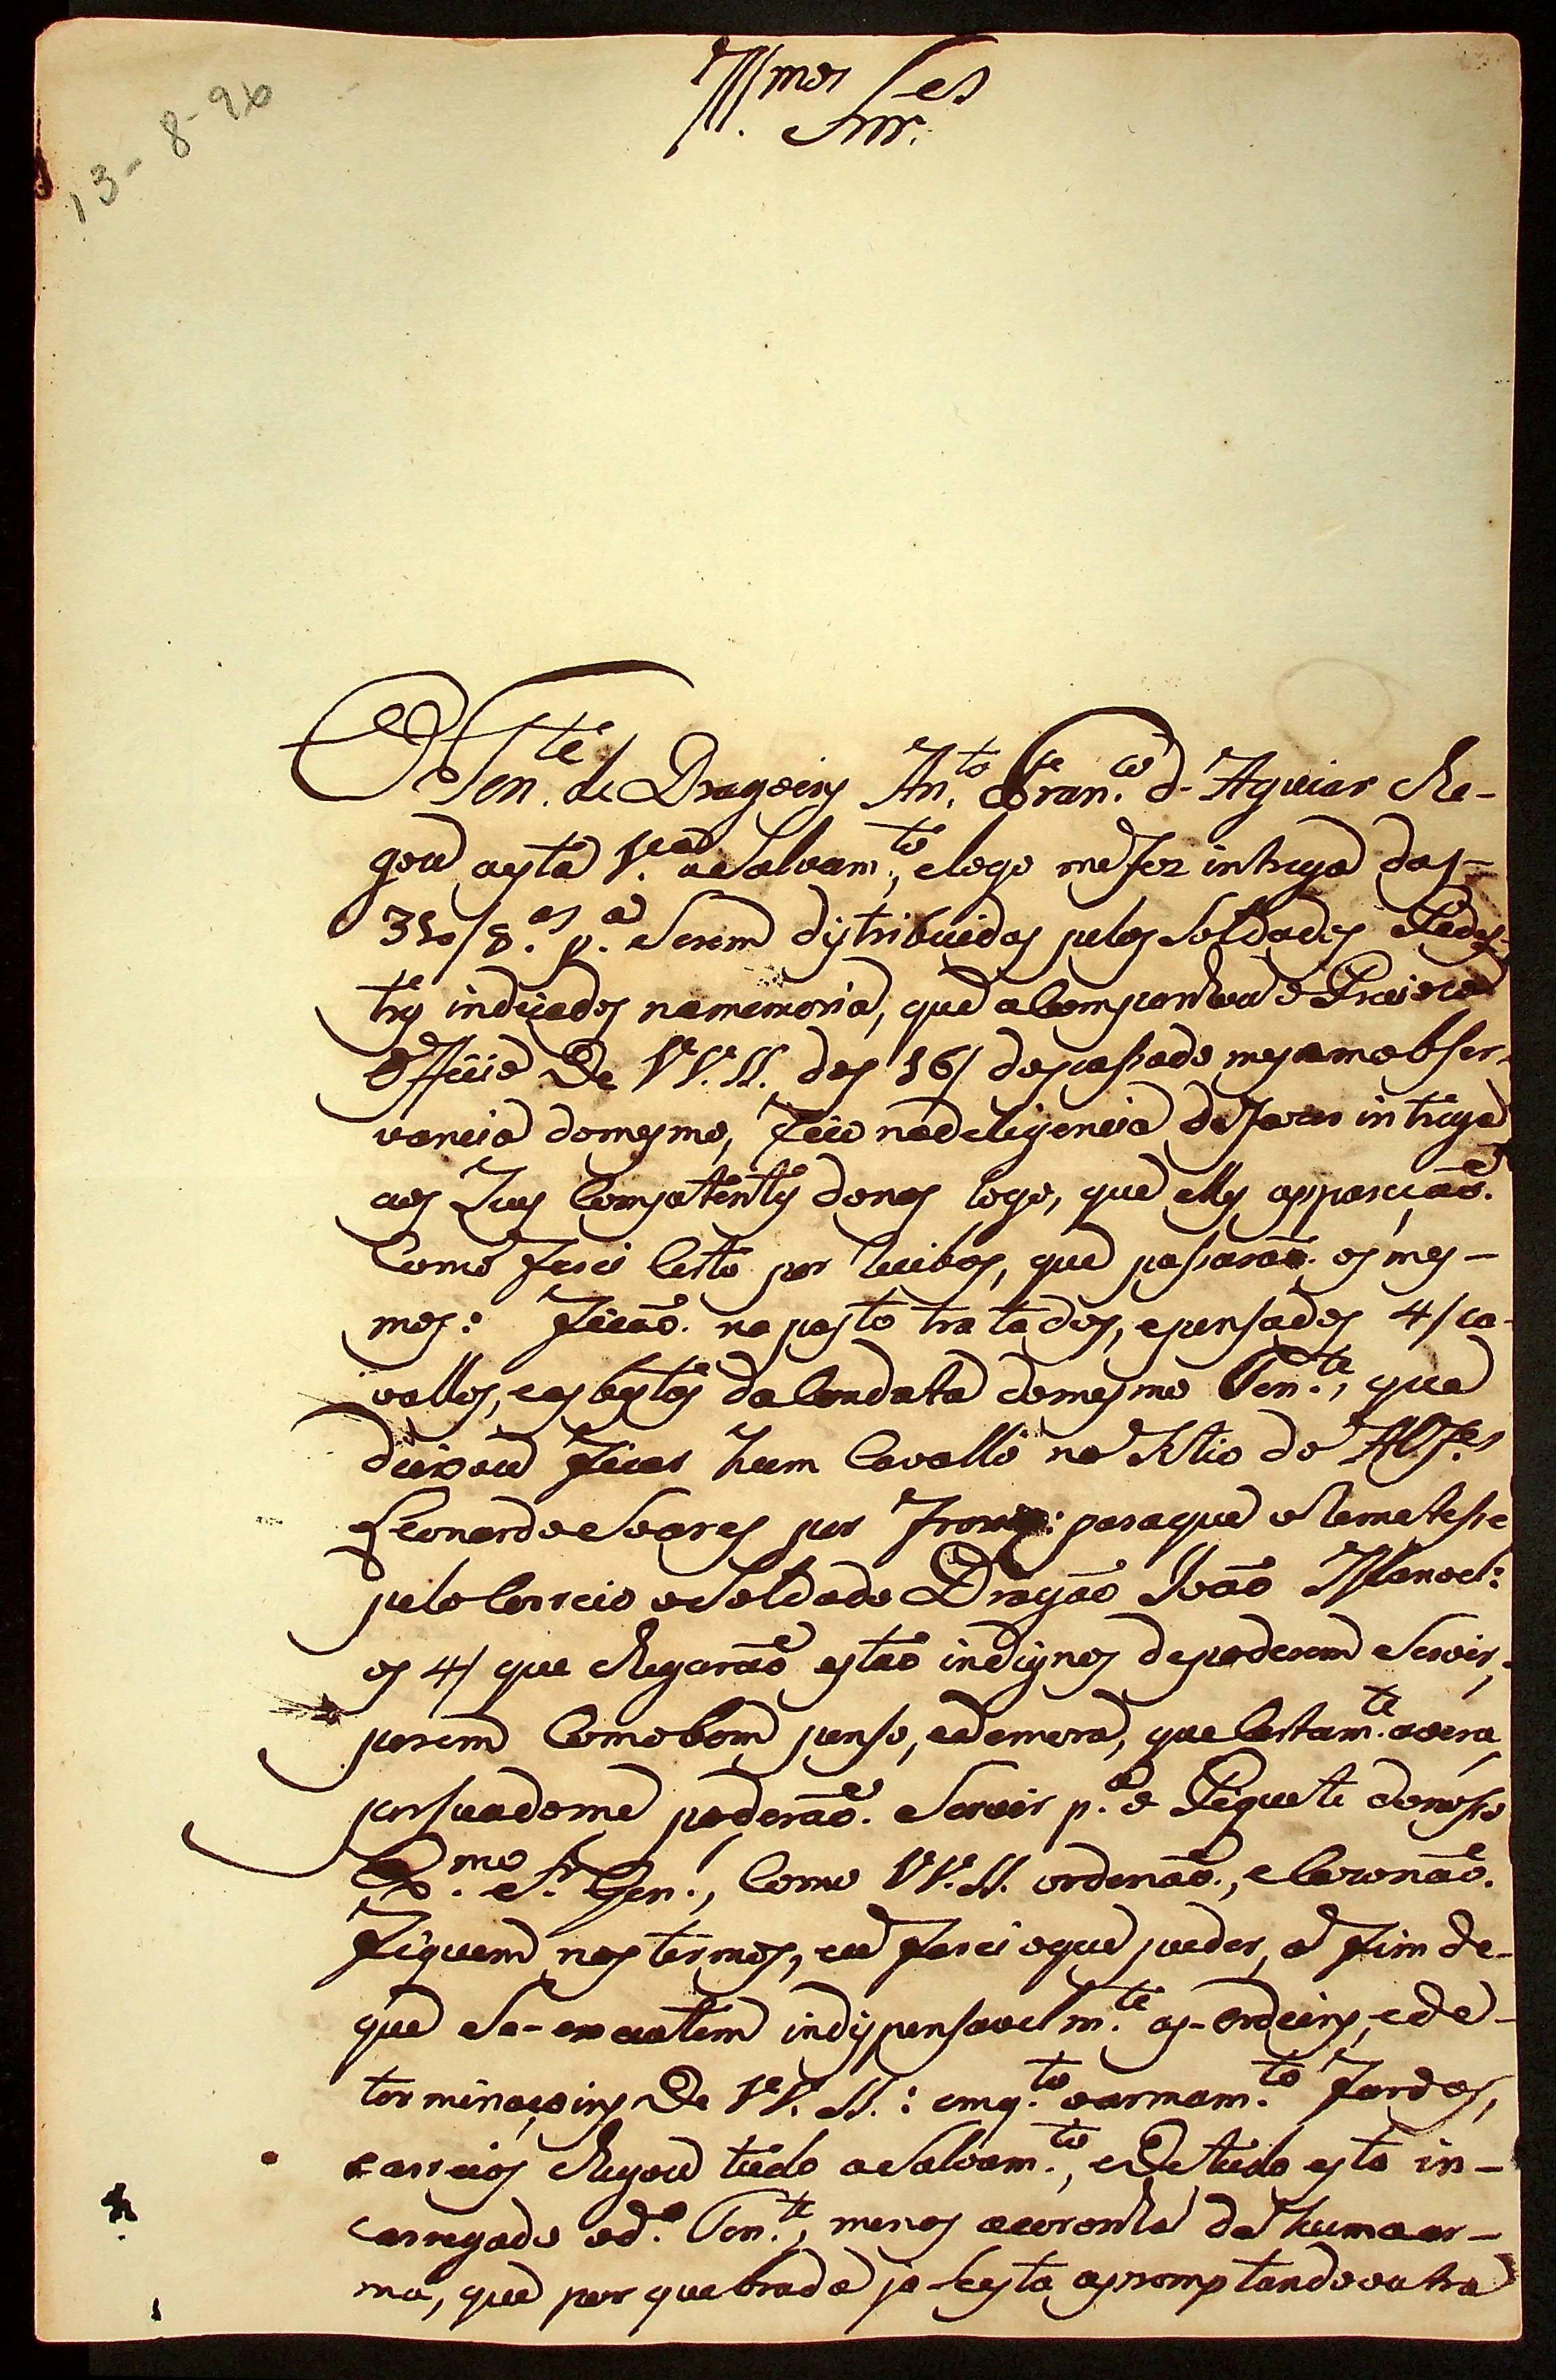 13-8-96
Illmos Snres
O Tente de Dragoens Anto Franco d'Aguiar che-
gou aesta Va a Salvamto, elogo mefez intrega das
320/8as pa Serem distribuidas pelos Soldados Pedes-
tres indicados namemoria, que acompanhou o Precioso
Officio De VV. SS. dos 16/ dopassado mes emobser-
vancia domesmo, fico nadeligencia defazer intrega
aos Seus Competentes donos logo, que elles appareção.
Como farei certo por recibos, que passarão os mes-
mos: ficão no pasto tratados, epensados 4/ ca-
vallos, eas bestas da Condata domesmo Tente, que
deixou ficar hum Cavallo no Sitio do Alfes
Leonardo Soares por frouxo: paraque o Remetesse
pelo Correio o Soldado Dragão João Manoel:
os 4/ que chegarão estão indignos depoderem Servir,
porem Comobom penso, edemora, que Certamte avera
persuadome poderão Servir pa o Piquete donosso
Exmo Sr Gen., Como VV. SS. ordenão, e
fiquem nos termos, eu farei oque puder, a fim de-
que Se-executem indispensavelmte as-ordens, ede-
terminaçoens De VV. SS.: emqto oarmamto fardos,
earreios chegou tudo aSalvamto, eDe tudo esta in-
carregado od.o Tente, menos acoronha de huma ar-
ma, que por quebrada ja-Seesta apromptandooutra